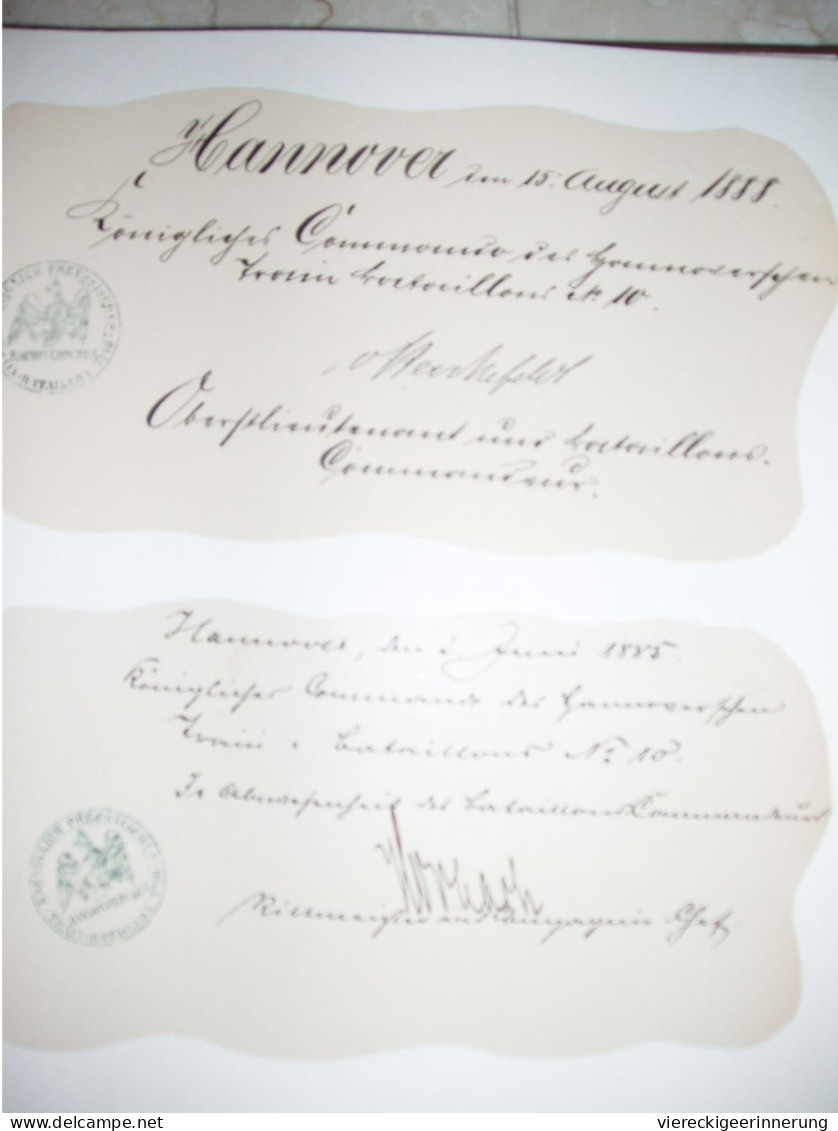 Hannover den 15. August 1888.
Königliches Commando des Hannoverschen
Train Bataillons № 10.
Oberstlieutenant und Bataillons-
Commandeur.
Hannover, den 2. Juni 1885.
Königliches Commando des Hannoverschen
Train-Bataillons No 10.
In Abwesenheit des Bataillons Commandeurs
Rittmeister und Compagnie-Chef.
delcampe.net
viereckigeerinnerung